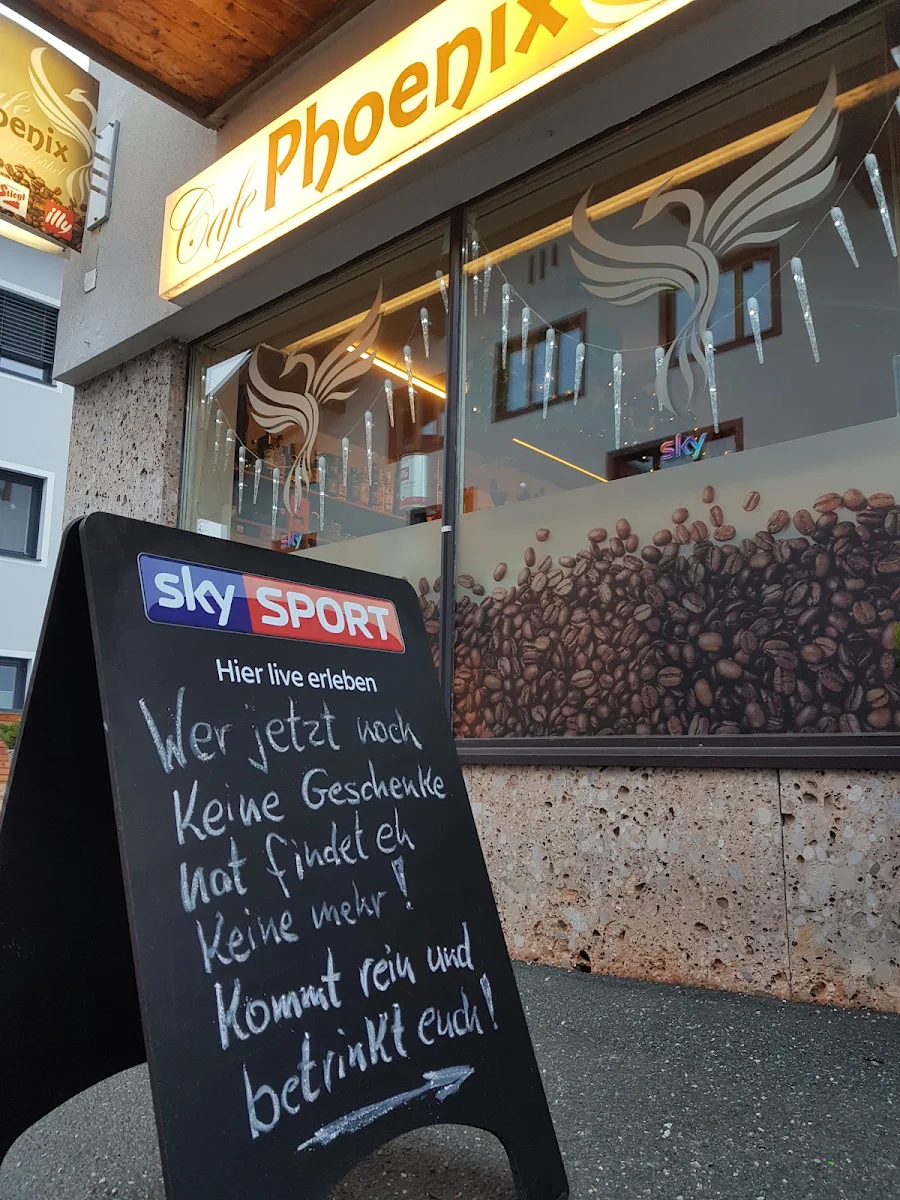 Cafe Phoenix
enix
Stiegl
illy
sky
sky
sky SPORT
Hier live erleben
Wer jetzt noch
Keine Geschenke
hat findet eh
Keine mehr!
Kommt rein und
betrinkt euch!